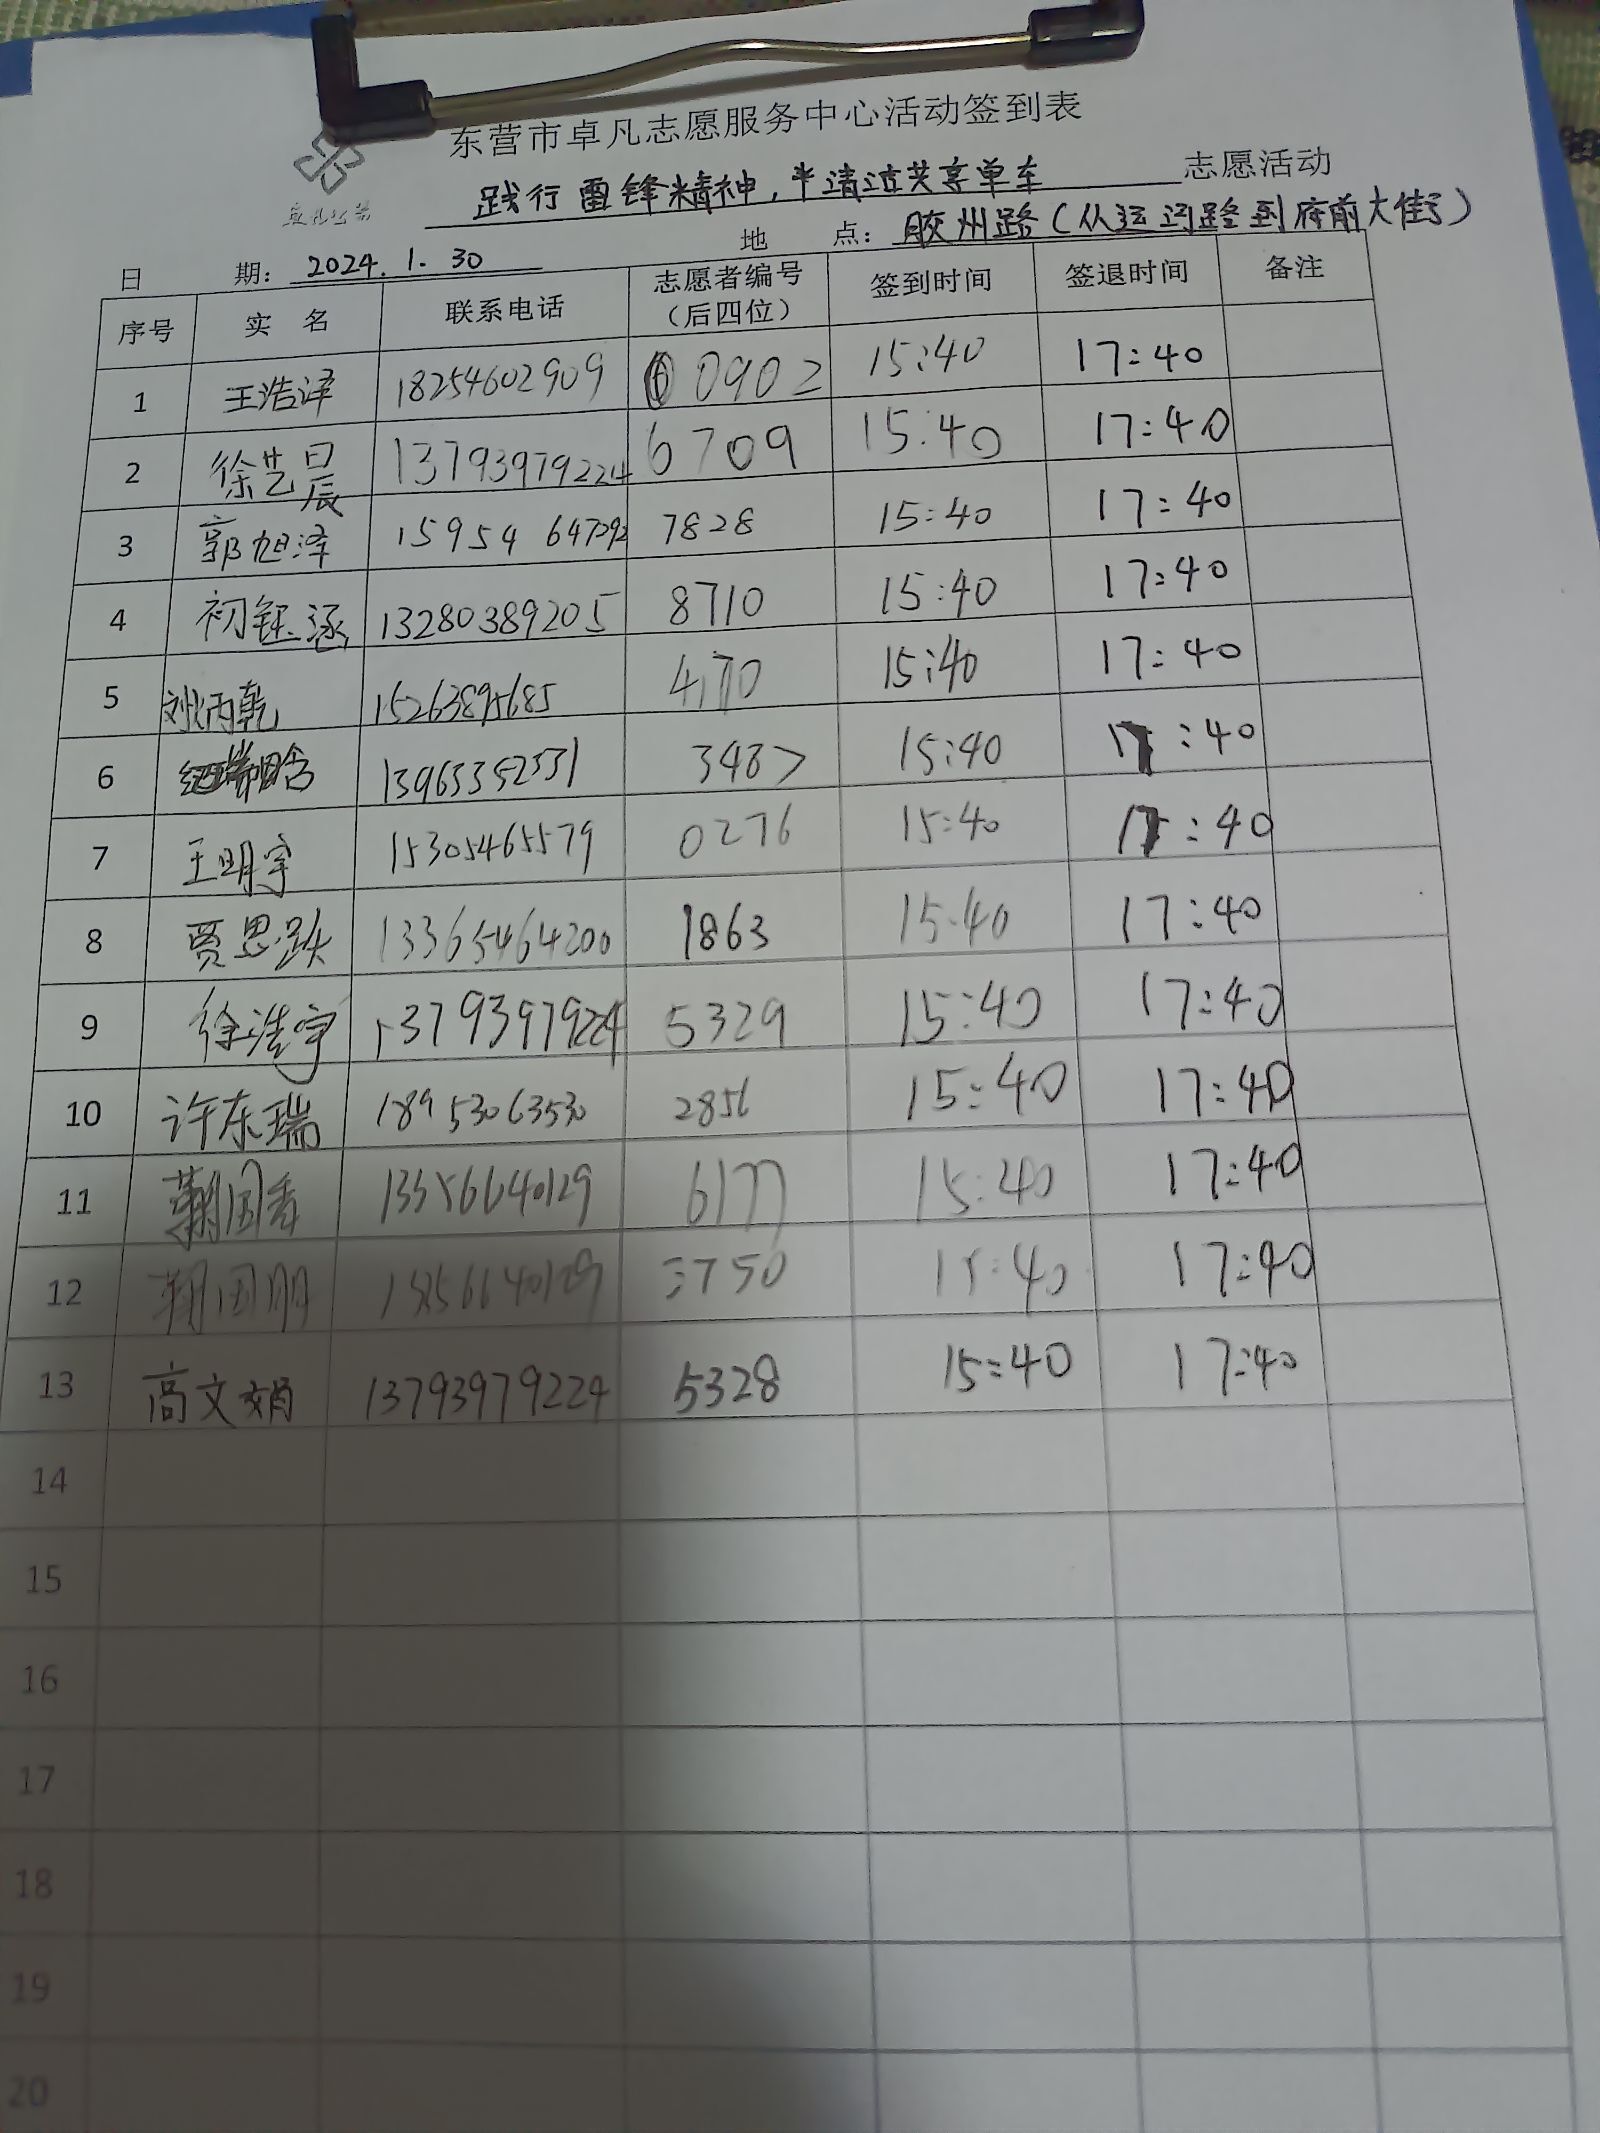 东营市卓凡志愿服务中心活动签到表
践行雷锋精神，清洁共享单车 志愿活动
日 期：2024.1.30 地 点：胶州路（从运河路到府前大街）
序号 实 名 联系电话 志愿者编号（后四位） 签到时间 签退时间 备注
1 王浩泽 18254602909 0902 15:40 17:40
2 徐艺晨 13793979224 6709 15:40 17:40
3 郭旭泽 15954 7828 15:40 17:40
4 初钰涵 13280389205 8710 15:40 17:40
5 刘丙乾 15263895685 4170 15:40 17:40
6 晗 13963352531 3487 15:40 17:40
7 王明宇 15305465579 0276 15:40 17:40
8 贾思跃 13365464200 1863 15:40 17:40
9 徐浩宇 13793979224 5329 15:40 17:40
10 许东瑞 18953063530 2856 15:40 17:40
11 国秀 13356640129 6177 15:40 17:40
12 国朋 3750 15:40 17:40
13 高文娟 13793979224 5328 15:40 17:40
14
15
16
17
18
19
20